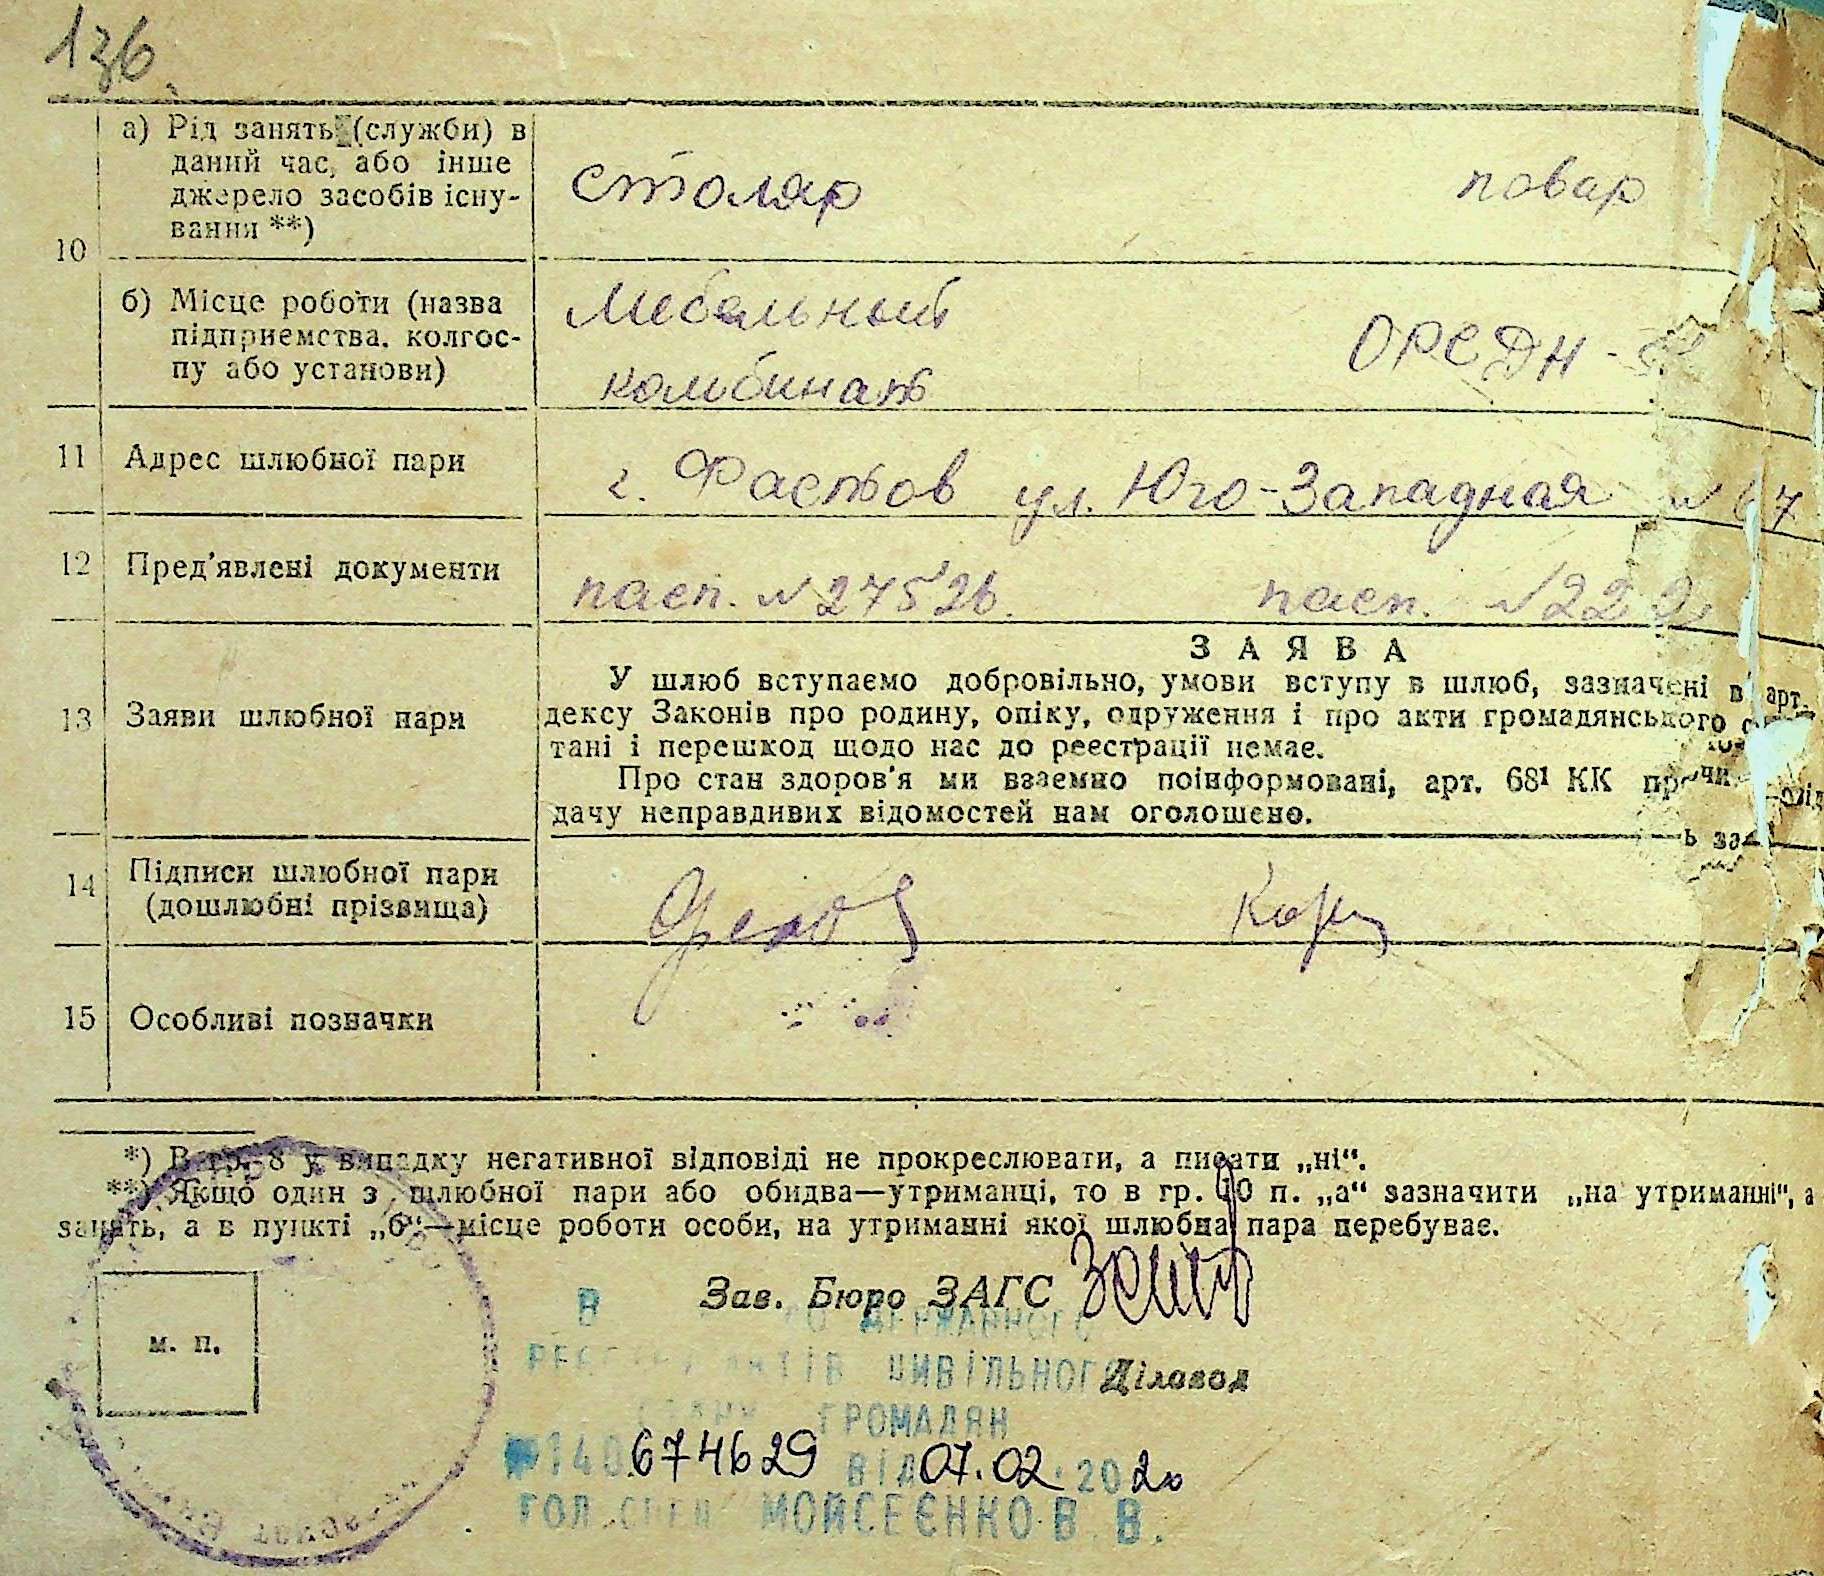 136
а) Рід занять (служби) в
даний час, або інше
джерело засобів існу-
вання **)
столяр
повар
10
б) Місце роботи (назва
підприємства, колгос-
пу або установи)
Мебельный
комбинат
ОРСДН-
11
Адрес шлюбної пари
г. Фастов ул. Юго-Западная №67
12
Пред'явлені документи
пасп. №27526.
пасп. №22
13
Заяви шлюбної пари
ЗАЯВА
У шлюб вступаємо добровільно, умови вступу в шлюб, зазначені в арт.
дексу Законів про родину, опіку, одруження і про акти громадянського
тані і перешкод щодо нас до реєстрації немає.
Про стан здоров'я ми взаємно поінформовані, арт. 68¹ КК
дачу неправдивих відомостей нам оголошено.
14
Підписи шлюбної пари
(дошлюбні прізвища)
15
Особливі позначки
*) В гр. 8 у випадку негативної відповіді не прокреслювати, а писати „ні“.
**) Якщо один з шлюбної пари або обидва—утриманці, то в гр. 10 п. „а“ зазначити „на утриманні“, а
занять, а в пункті „б“—місце роботи особи, на утриманні якої шлюбна пара перебуває.
Зав. Бюро ЗАГС
м. п.
В ДЕРЖАВНОГО
ЦИВІЛЬНОГО
Діловод
ГРОМАДЯН
№140 674629 ВІД 07.02.2020
ГОЛ.СПЕЦ МОЙСЕЄНКО В.В.